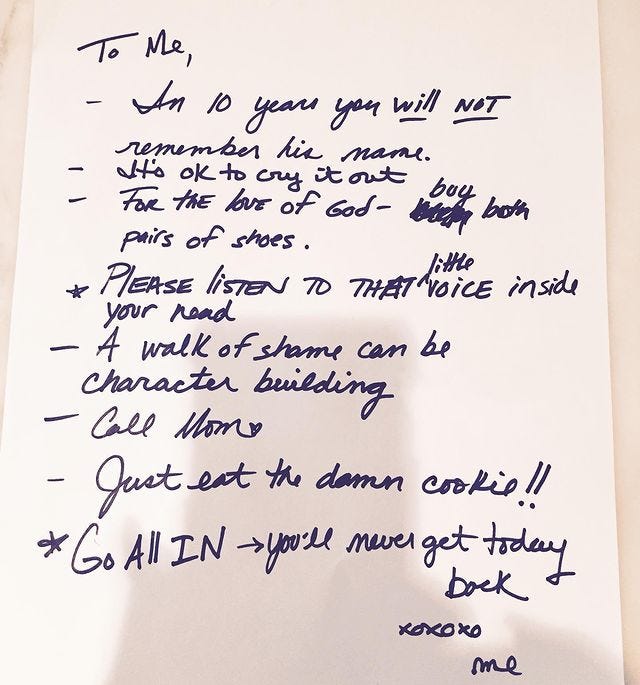 To Me,
- In 10 years you will NOT
remember his name.
- It's ok to cry it out
- FOR THE LOVE OF GOD - buy both
pairs of shoes.
* PLEASE LISTEN TO THAT little VOICE inside
your head
- A walk of shame can be
character building
- Call Mom ♡
- Just eat the damn cookie!!
* Go All IN → you'll never get today
back
xoxoxo
me